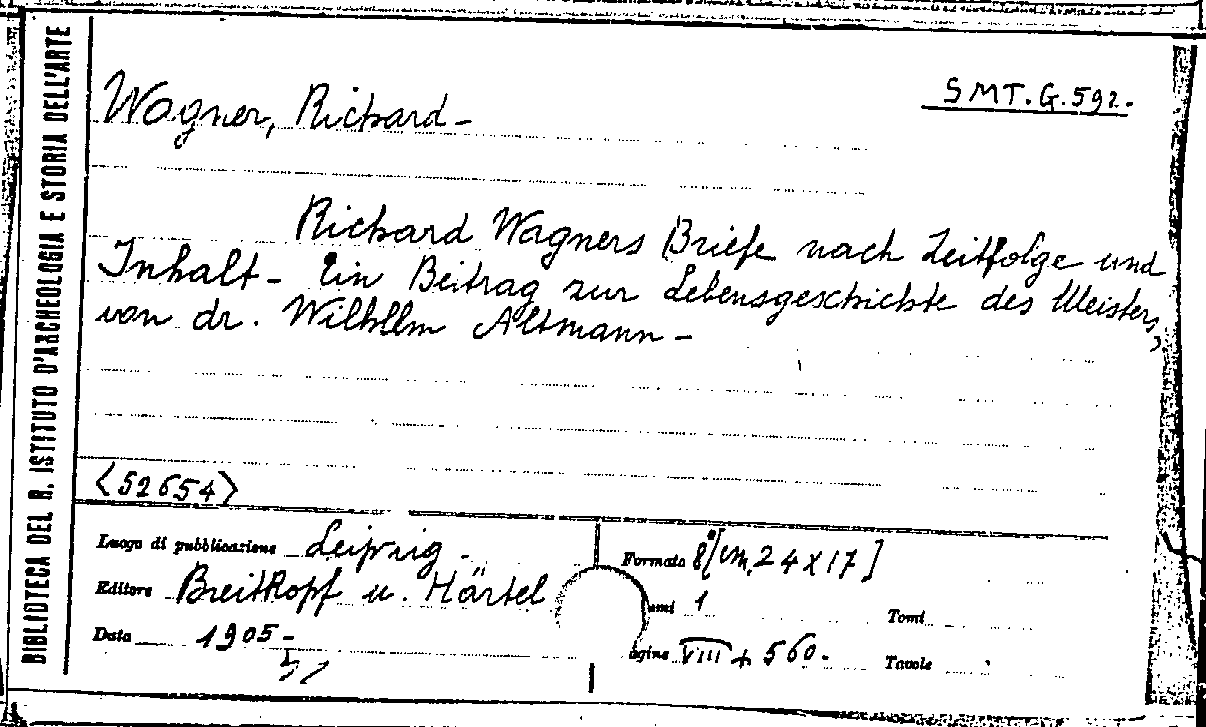 BIBLIOTECA DEL R. ISTITUTO D'ARCHEOLOGIA E STORIA DELL'ARTE
SMT.G.592.
Wagner, Richard-
Richard Wagners Briefe nach Zeitfolge und
Inhalt- Ein Beitrag zur Lebensgeschichte des Meisters,
von dr. Wilhelm Altmann-
<52654>
Luogo di pubblicazione Leipzig-
Editore Breitkopf u. Härtel
Data 1905-
Formato 8°[cm. 24x17]
umi 1 Tomi
agine VIII + 560. Tavole